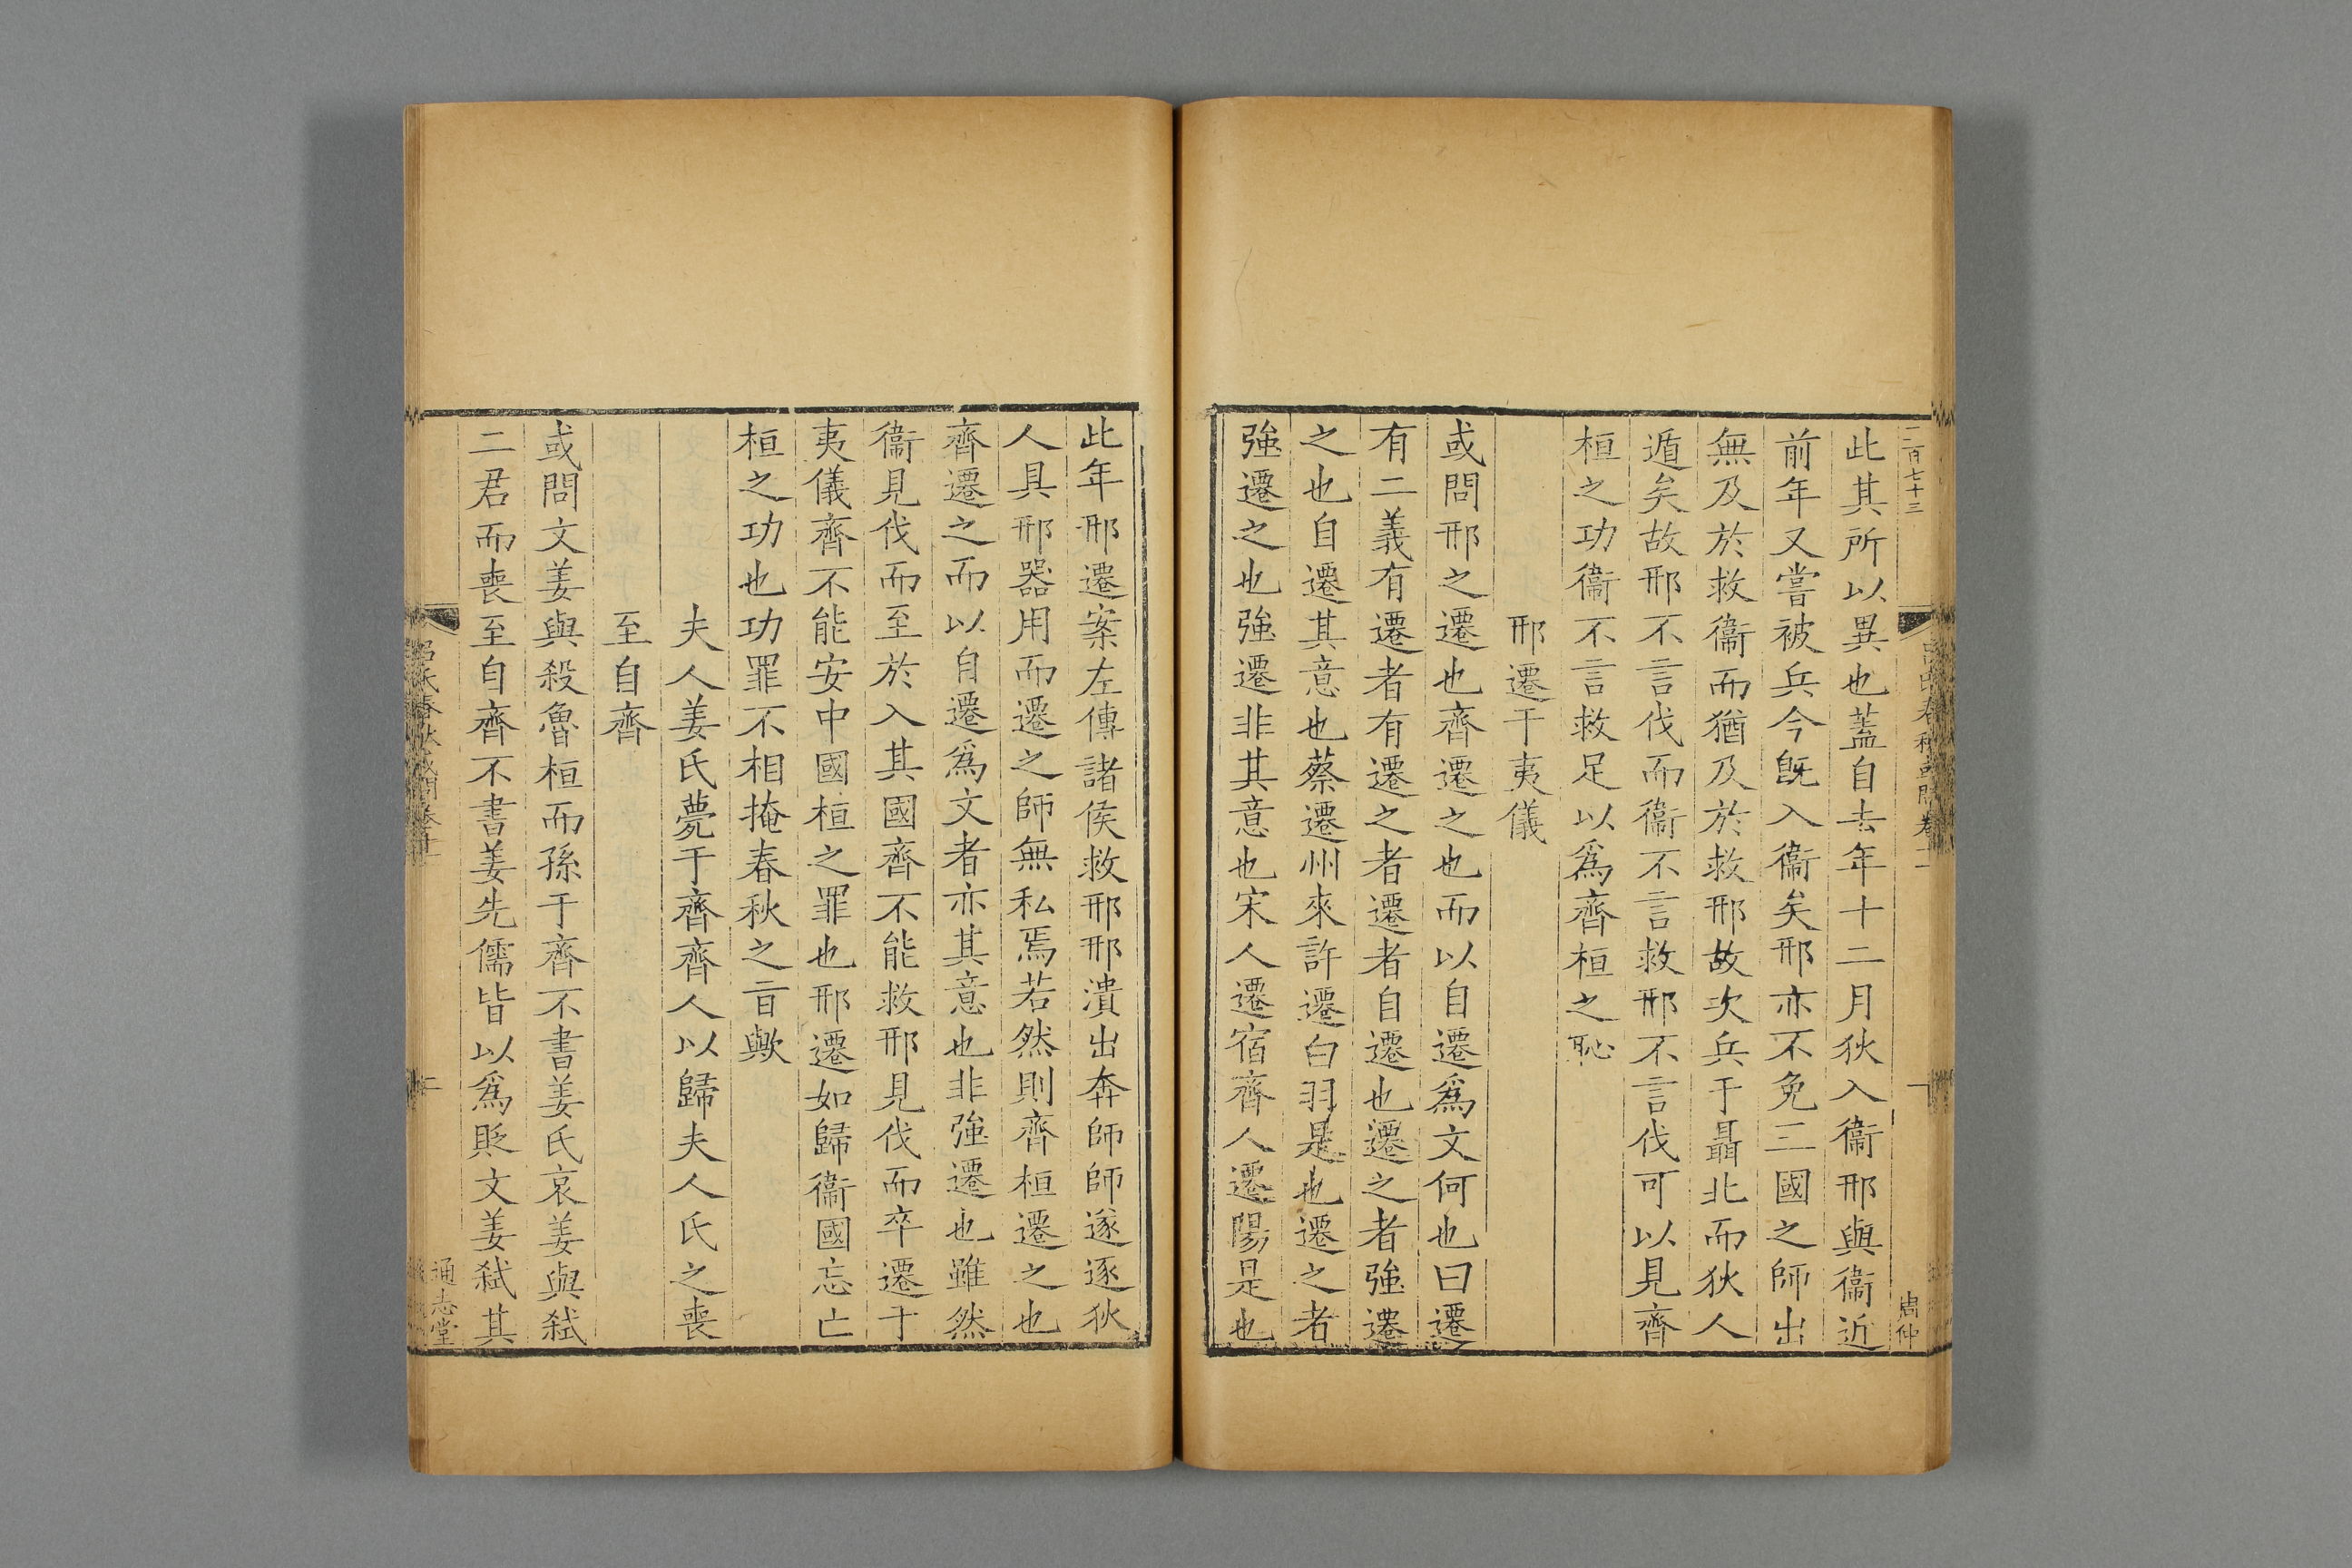 二百七十三
此其所以異也蓋自去年十二月狄入衞邢與衞近
前年又嘗被兵今旣入衞矣邢亦不免三國之師出
無及於救衞而猶及於救邢故次兵于聶北而狄人
遁矣故邢不言伐而衞不言救邢不言伐可以見齊
桓之功衞不言救足以爲齊桓之恥
邢遷于夷儀
或問邢之遷也齊遷之也而以自遷爲文何也曰遷
有二義有遷者有遷之者遷者自遷也遷之者強遷
之也自遷其意也蔡遷州來許遷白羽是也遷之者
強遷之也強遷非其意也宋人遷宿齊人遷陽是也
此年邢遷案左傳諸侯救邢邢潰出奔師師遂逐狄
人具邢器用而遷之師無私焉若然則齊桓遷之也
齊遷之而以自遷爲文者亦其意也非強遷也雖然
衞見伐而至於入其國齊不能救邢見伐而卒遷于
夷儀齊不能安中國桓之罪也邢遷如歸衞國忘亡
桓之功也功罪不相掩春秋之旨歟
夫人姜氏薨于齊齊人以歸夫人氏之喪
至自齊
或問文姜與殺魯桓而孫于齊不書姜氏哀姜與弑
二君而喪至自齊不書姜先儒皆以爲貶文姜弑其
呂氏春秋或問卷十二
二
通志堂